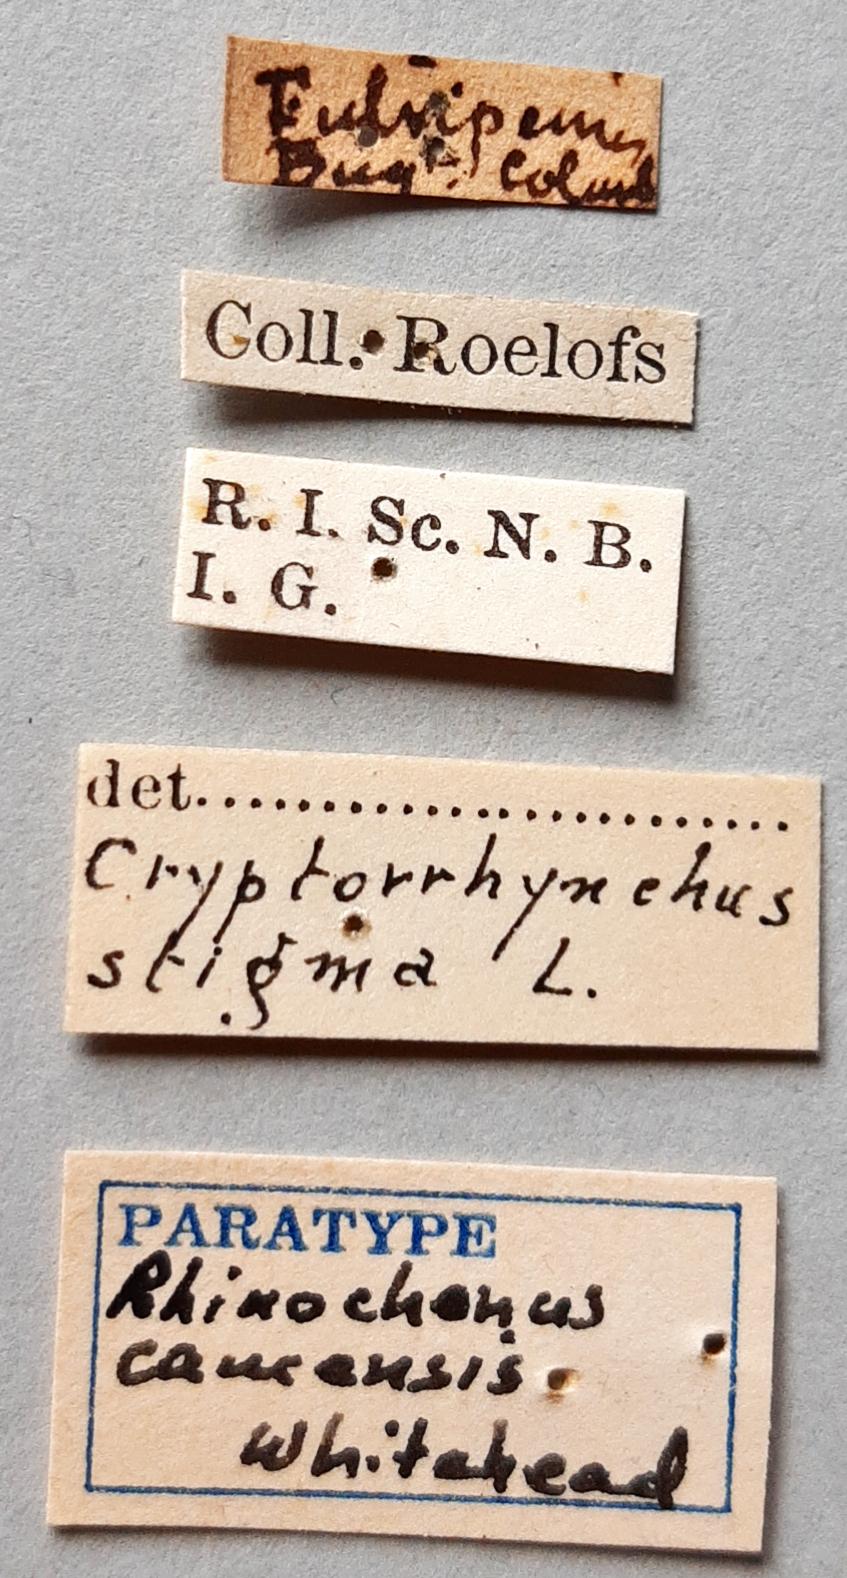 Fulvipennis
Bugᵃ. Colomb
Coll. Roelofs
R. I. Sc. N. B.
I. G.
det..........................
Cryptorrhynchus
stigma L.
PARATYPE
Rhinochenus
caucensis
Whitehead